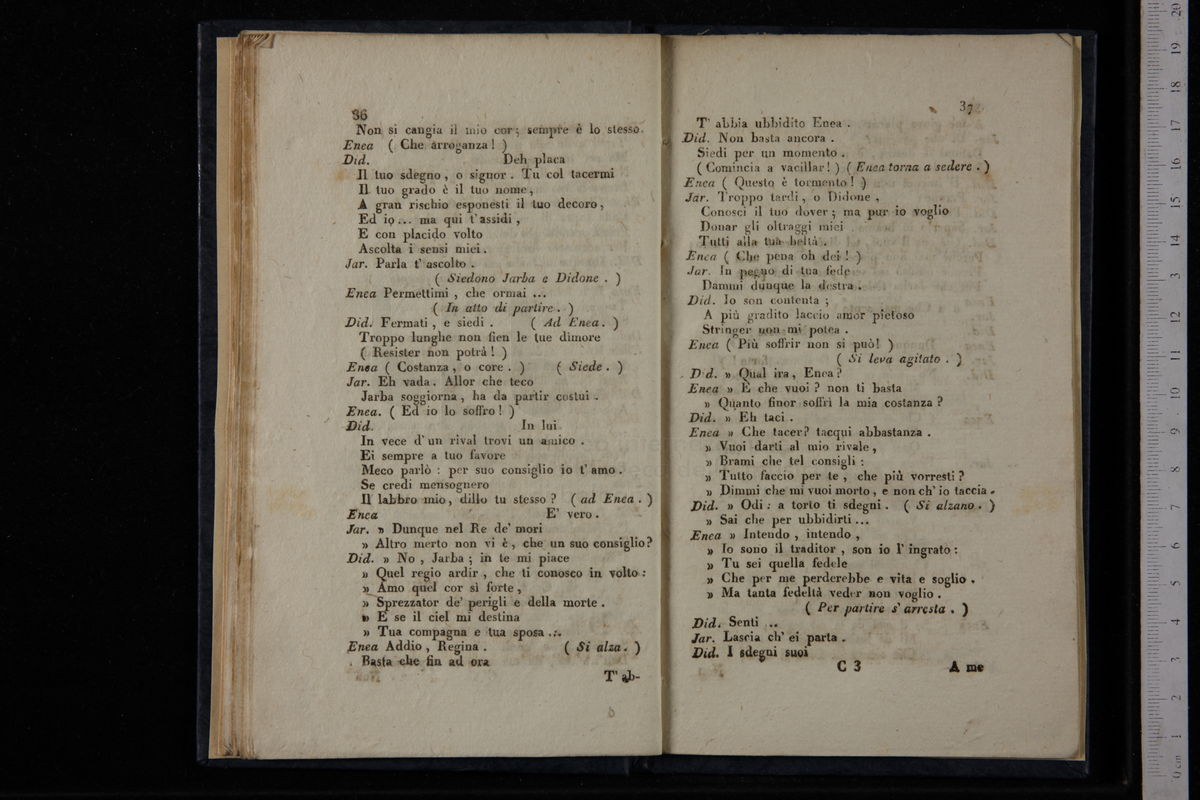 36
Non si cangia il mio cor; sempre è lo stesso.
Enea ( Che arroganza! )
Did. Deh placa
Il tuo sdegno, o signor. Tu col tacermi
Il tuo grado è il tuo nome,
A gran rischio esponesti il tuo decoro,
Ed io... ma qui t'assidi,
E con placido volto
Ascolta i sensi miei.
Jar. Parla t'ascolto.
( Siedono Jarba e Didone. )
Enea Permettimi, che ormai ...
( In atto di partire. )
Did. Fermati, e siedi. ( Ad Enea. )
Troppo lunghe non fien le tue dimore
( Resister non potrà! )
Enea ( Costanza, o core. ) ( Siede. )
Jar. Eh vada. Allor che teco
Jarba soggiorna, ha da partir costui.
Enea. ( Ed io lo soffro! )
Did. In lui
In vece d'un rival trovi un amico.
Ei sempre a tuo favore
Meco parlò: per suo consiglio io t'amo.
Se credi mensognero
Il labbro mio, dillo tu stesso? ( ad Enea. )
Enea E' vero.
Jar. » Dunque nel Re de' mori
» Altro merto non vi è, che un suo consiglio?
Did. » No, Jarba; in te mi piace
» Quel regio ardir, che ti conosco in volto:
» Amo quel cor sì forte,
» Sprezzator de' perigli e della morte.
» E se il ciel mi destina
» Tua compagna e tua sposa...
Enea Addio, Regina. ( Si alza. )
Basta che fin ad ora
T'ab-
37
T'abbia ubbidito Enea.
Did. Non basta ancora.
Siedi per un momento.
( Comincia a vacillar! ) ( Enea torna a sedere. )
Enea ( Questo è tormento! )
Jar. Troppo tardi, o Didone,
Conosci il tuo dover; ma pur io voglio
Donar gli oltraggi miei
Tutti alla tua beltà.
Enea ( Che pena oh dei! )
Jar. In pegno di tua fede
Dammi dunque la destra.
Did. Io son contenta;
A più gradito laccio amor pietoso
Stringer non mi potea.
Enea ( Più soffrir non si può! )
( Si leva agitato. )
Did. » Qual ira, Enea?
Enea » E che vuoi? non ti basta
» Quanto finor soffrì la mia costanza?
Did. » Eh taci.
Enea » Che tacer? tacqui abbastanza.
» Vuoi darti al mio rivale,
» Brami che tel consigli:
» Tutto faccio per te, che più vorresti?
» Dimmi che mi vuoi morto, e non ch'io taccia.
Did. » Odi: a torto ti sdegni. ( Si alzano. )
» Sai che per ubbidirti...
Enea » Intendo, intendo,
» Io sono il traditor, son io l'ingrato:
» Tu sei quella fedele
» Che per me perderebbe e vita e soglio.
» Ma tanta fedeltà veder non voglio.
( Per partire s'arresta. )
Did. Senti ..
Jar. Lascia ch'ei parta.
Did. I sdegni suoi
C 3 A me